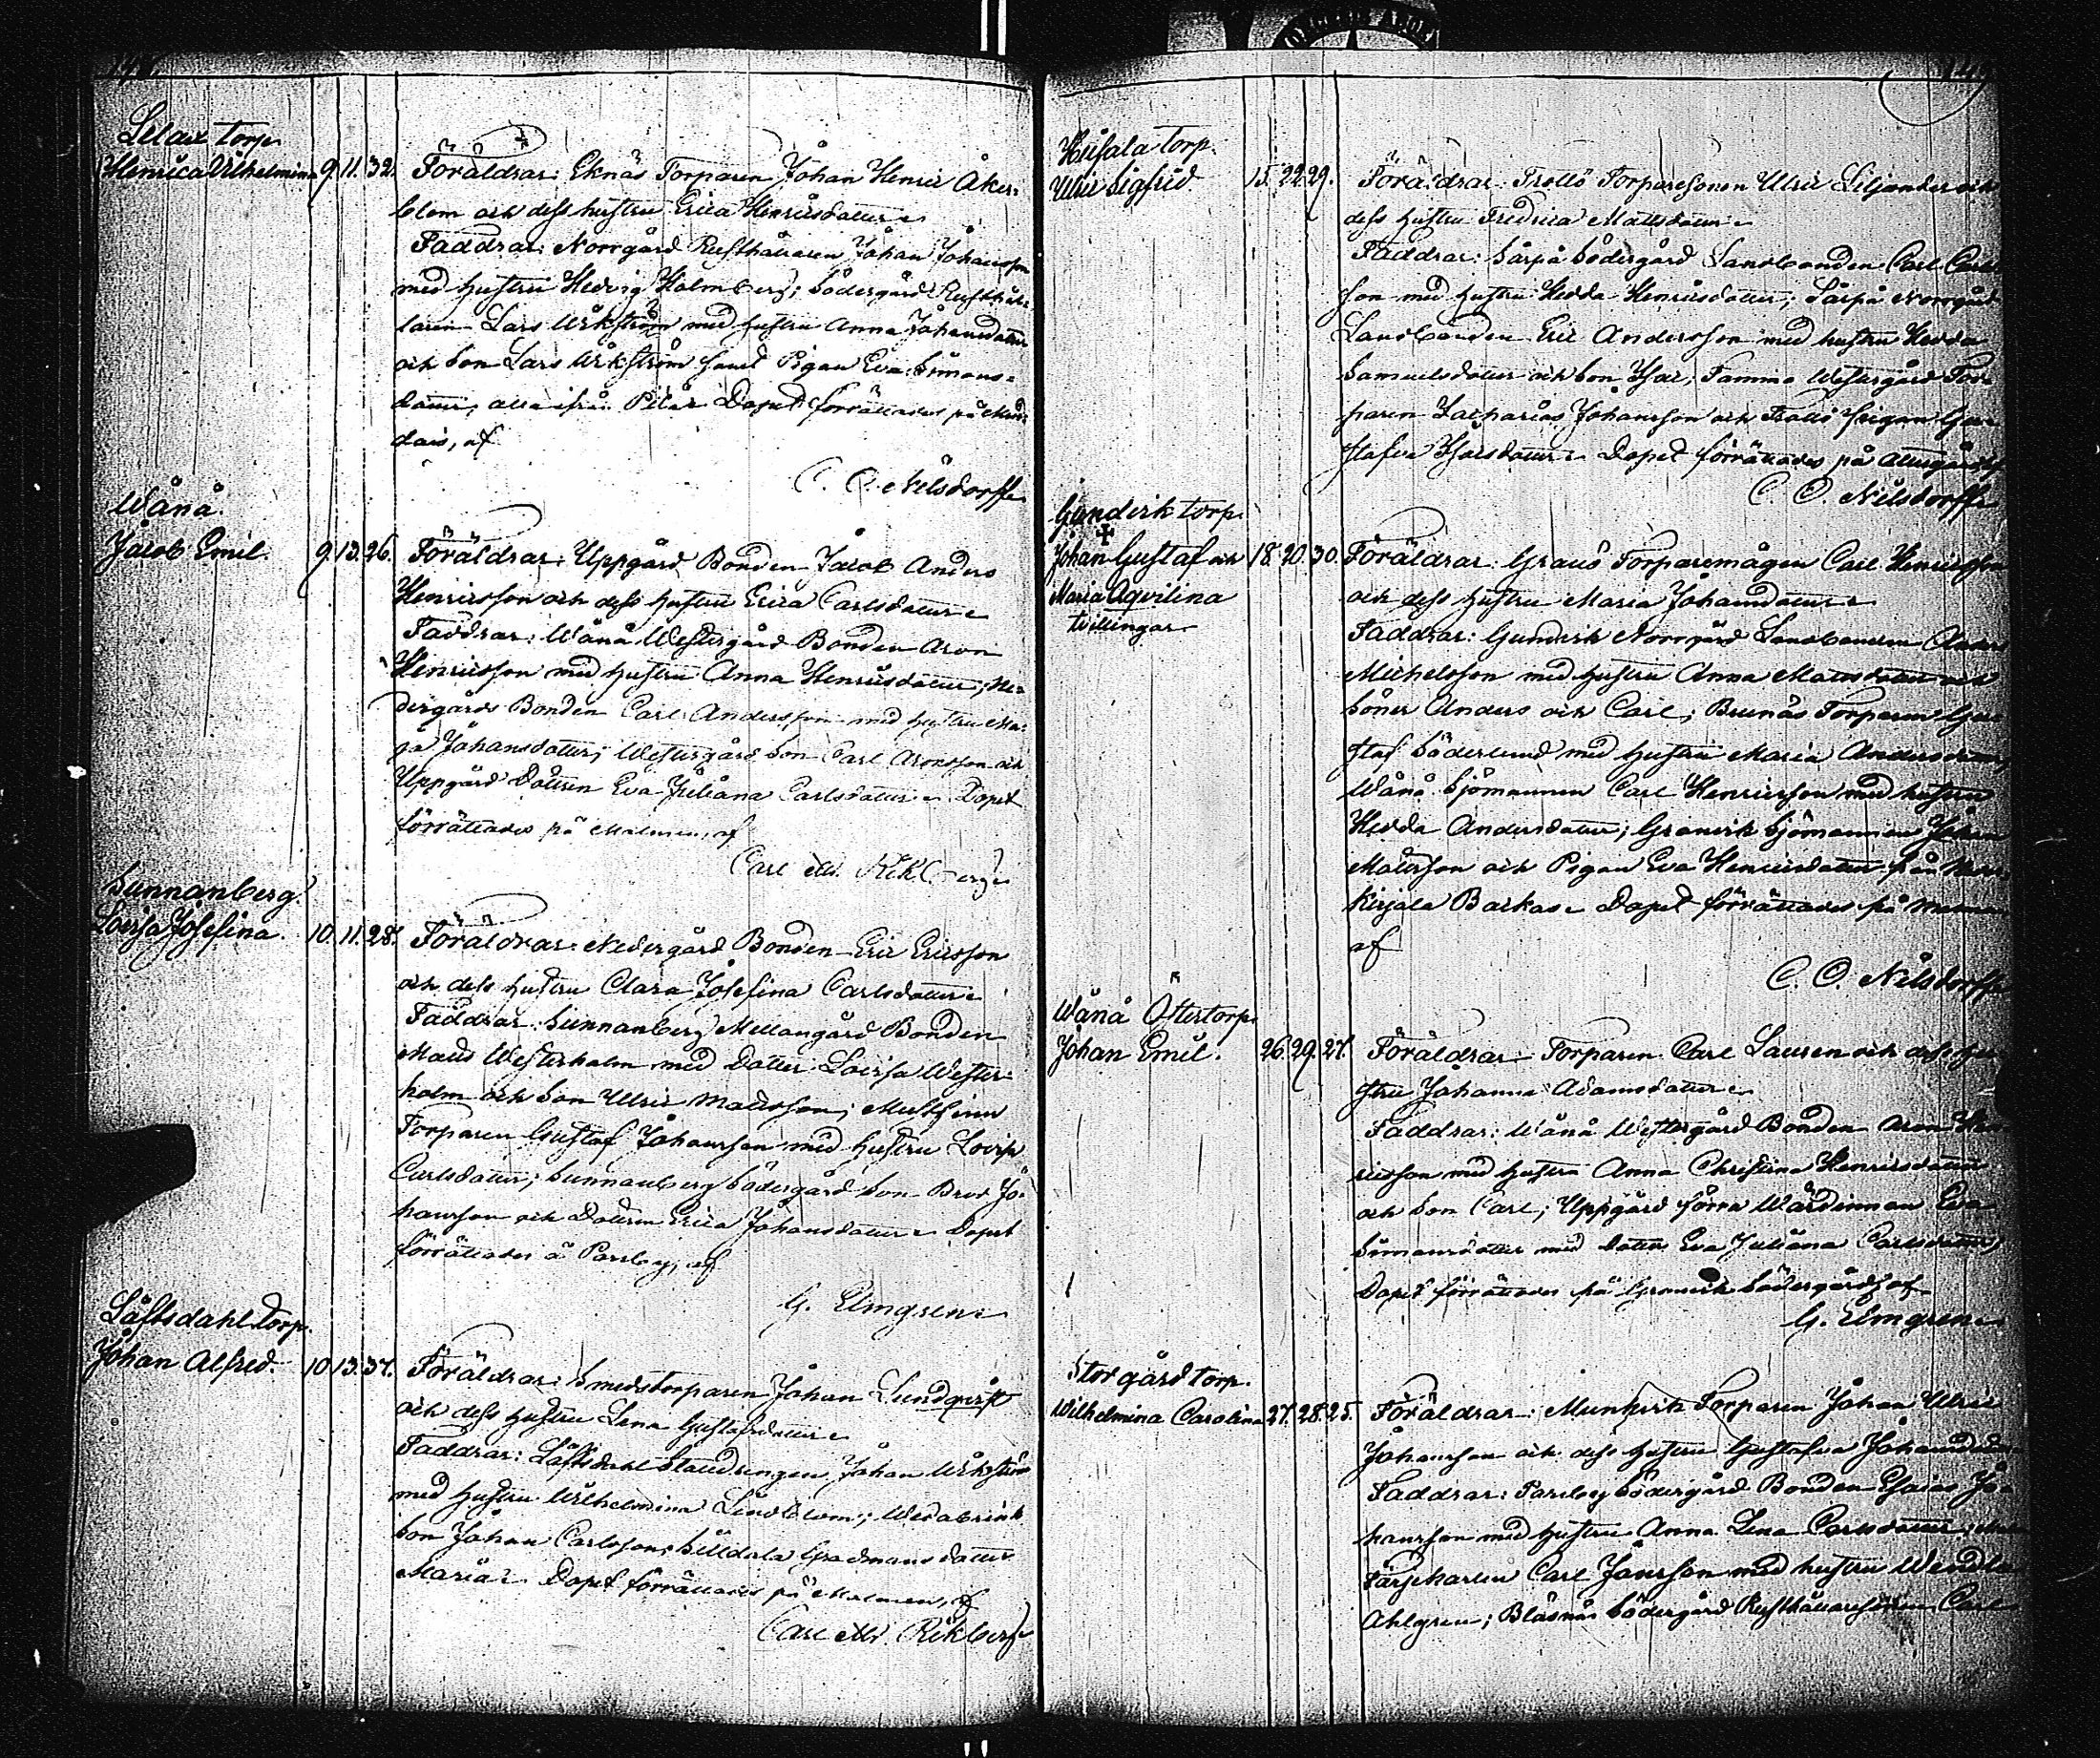 148.
Lelax torp.
Henrica Wilhelmina 9. 11. 32. Föräldrar: Eknäs Torparen Johan Henric Åker-
blom och dess hustru Erica Henricsdotter.
Faddrar: Norrgård Rusthållaren Johan Johansson
med hustru Hedvig Holmberg; Södergård Rusthål-
laren Lars Wikström med hustru Anna Johansdotter
och Son Lars Wikström samt Pigan Eva Simons-
dotter, alla ifrån Pilar. Dopet förrättades på
dais, af
C. O. Nilsdorff.
Wånå.
Jacob Emil. 9. 13. 26. Föräldrar: Uppgård Bonden Jacob Anders
Henricsson och dess hustru Erica Carlsdotter.
Faddrar: Wånå Westergård Bonden Aron
Henricsson med hustru Anna Henricsdotter; Ne-
dergårds Bonden Carl Andersson med hustru Ma-
ja Johansdotter; Westergård Son Carl Aronsson och
Uppgård Dottren Eva Juliana Carlsdotter. Dopet
förrättades på Malmen, af
Carl M. Rikberg.
Sunnanberg.
Lovisa Josefina. 10. 11. 28. Föräldrar: Nedergård Bonden Eric Ericsson
och dess hustru Clara Josefina Carlsdotter.
Faddrar: Sunnanberg Mellangård Bonden
Matts Westerholm med Dotter Lovisa Wester-
holm och Son Ulric Mattsson;
Torparen Gustaf Johansson med hustru Lovisa
Carlsdotter; Sunnanberg Södergård Son Bror Jo-
hansson och Dottren Erica Johansdotter. Dopet
förrättades å Parsby, af
G. Elmgren.
Läftsdahl torp.
Johan Alfred. 10. 13. 37. Föräldrar: Smedstorparen Johan Lundqvist
och dess hustru Lena Gustafsdotter.
Faddrar: Läftsdahl Stalldrengen Johan Wikström
med hustru Wilhelmina Lindblom;
Son Johan Carlsson; Silldala Gradmans dotter
Maria. Dopet förrättades på Malmen, af
Carl M. Rikberg.
149
torp.
Ulric Sigfrid. 15. 22. 29. Föräldrar: Trollö Torparesonen Ulric Liljander och
dess hustru Fredrica Mattsdotter.
Faddrar: Särpä Södergård Landbonden Carl Carls-
son med hustru Hedda Henricsdotter; Särpä Norrgård
Landbonden Eric Andersson med hustru Hedda
Samuelsdotter och Son Isac; Tammo Westergård Tor-
paren Zacharias Johansson och Trollö Pigan Gu-
stafva Isacsdotter. Dopet förrättades på
C. O. Nilsdorff.
Gundvik torp.
Johan Gustaf och 18. 20. 30. Föräldrar: Granö Torparemågen Carl Henricsson
Maria Aqvilina och dess hustru Maria Johansdotter.
tvillingar. Faddrar: Gundvik Norrgård Landbonden Anders
Michelsson med hustru Anna Mattsdotter och
Söner Anders och Carl; Brunäs Torparen Gu-
staf Söderlund med hustru Maria Andersdotter;
Wånå Sjömannen Carl Henricsson med hustru
Hedda Andersdotter; Granvik Sjömannen Johan
Mattsson och Pigan Eva Henricsdotter från
Kirjala Backas. Dopet förrättades på
af
C. O. Nilsdorff.
Wånå Öftertorp.
Johan Emil. 26. 29. 27. Föräldrar: Torparen Carl Lauren och dess hu-
stru Johanna Adamsdotter.
Faddrar: Wånå Westergård Bonden Aron Hen-
ricsson med hustru Anna Christina Henricsdotter
och Son Carl; Uppgård förra Wärdinnan Eva
Simonsdotter med dotter Eva Juliana Carlsdotter;
Dopet förrättades på Granvik Södergård, af
G. Elmgren.
Storgård torp.
Wilhelmina Carolina 27. 28. 25. Föräldrar: Munkvik Torparen Johan Ulric
Johansson och dess hustru Gustafva Johansdotter.
Faddrar: Parsby Södergård Bonden Esaias Jo-
hansson med hustru Anna Lena Carlsdotter;
Färjekarlen Carl Jansson med hustru Wendla
Ahlgren; Bläsnäs Södergård Rusthållaresonen Carl